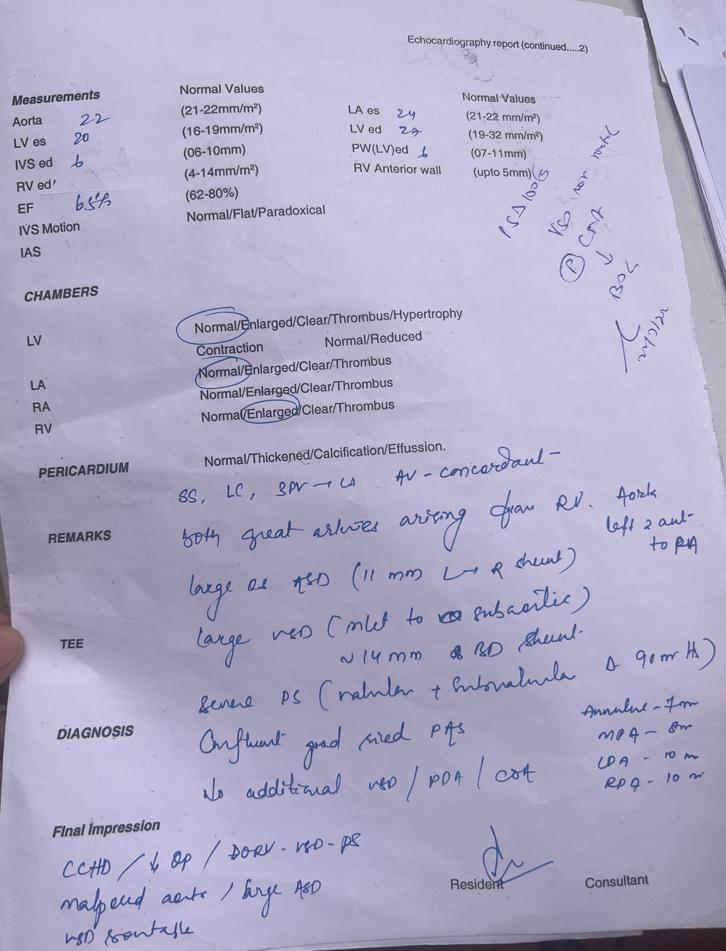 Echocardiography report (continued.....2)
Measurements Normal Values Normal Values
Aorta 22 (21-22mm/m²) LA es 24 (21-22 mm/m²)
LV es 20 (16-19mm/m²) LV ed 27 (19-32 mm/m²)
IVS ed 6 (06-10mm) PW(LV)ed 6 (07-11mm)
RV ed' (4-14mm/m²) RV Anterior wall (upto 5mm)
EF 65% (62-80%)
IVS Motion Normal/Flat/Paradoxical
IAS
VSD non routable
CHAMBERS
LV Normal/Enlarged/Clear/Thrombus/Hypertrophy
Contraction Normal/Reduced
LA Normal/Enlarged/Clear/Thrombus
RA Normal/Enlarged/Clear/Thrombus
RV Normal/Enlarged/Clear/Thrombus
PERICARDIUM Normal/Thickened/Calcification/Effussion.
SS, LC, SPV → LA AV - concordant
REMARKS both great arteries arising from RV. Aorta
left & ant to PA
large os ASD (11 mm L→R shunt)
TEE Large VSD (inlet to subaortic)
~ 14 mm BD shunt
severe PS (valvular + subvalvular Δ 90 m Hg)
DIAGNOSIS Confluent good sized PAs
Annulus - 7 mm
MPA - 8 m
LPA - 10 m
RPA - 10 m
No additional VSD / PDA / COA
FInal Impression
CCHD / ↓ Qp / DORV - VSD - PS
malposed aorta / large ASD
VSD routable
Resident Consultant